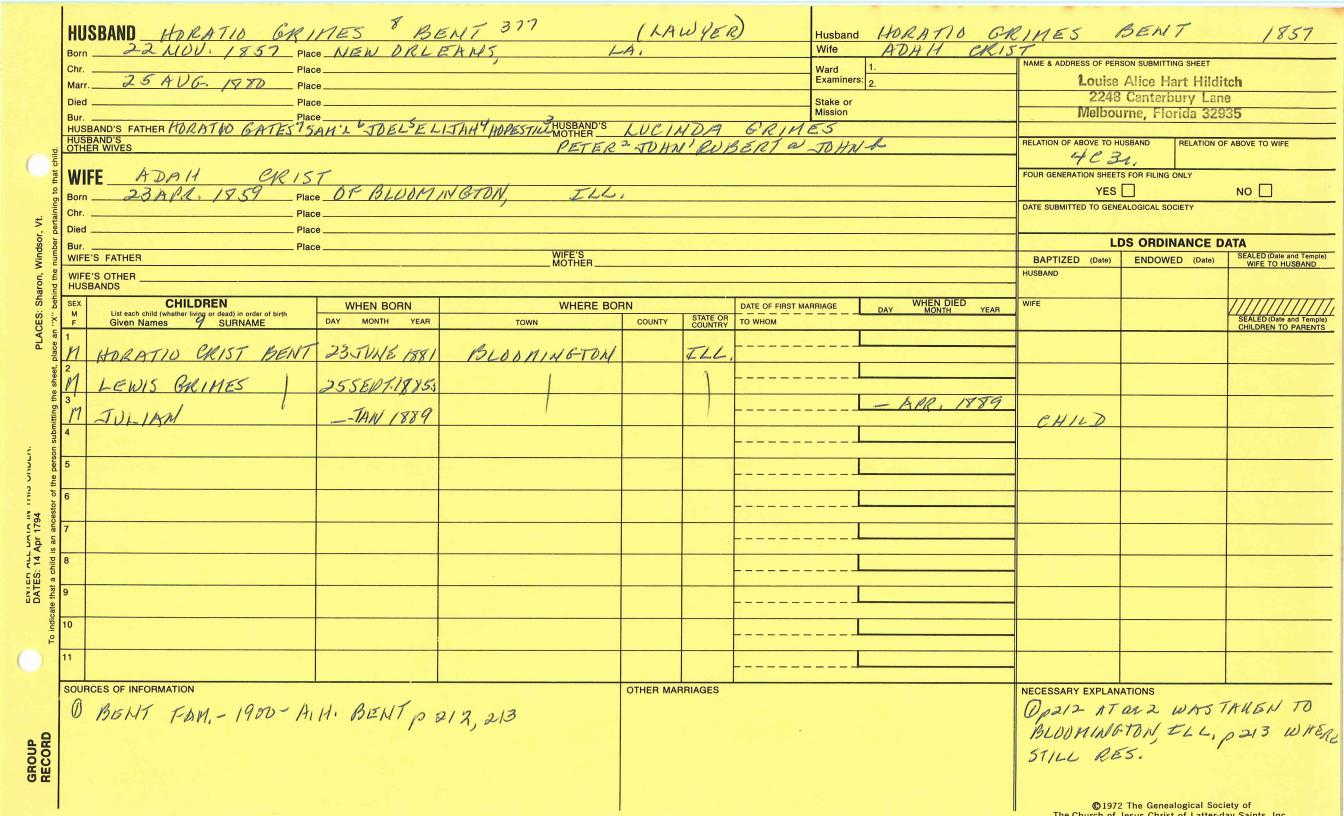 HUSBAND HORATIO GRIMES 8 BENT 377 (LAWYER)
Born 22 NOV. 1857 Place NEW ORLEANS, LA.
Chr. Place
Marr. 25 AUG. 1880 Place
Died Place
Bur. Place
HUSBAND'S FATHER HORATIO GATES 7 SAM'L 6 JOEL 5 ELIJAH 4 HOPESTILL 3 HUSBAND'S MOTHER LUCINDA GRIMES
HUSBAND'S OTHER WIVES PETER 2 JOHN 1 ROBERT a JOHN b
Husband HORATIO GRIMES BENT 1857
Wife ADAH CRIST
Ward Examiners: 1.
2.
Stake or Mission
NAME & ADDRESS OF PERSON SUBMITTING SHEET
Louise Alice Hart Hilditch
2248 Canterbury Lane
Melbourne, Florida 32935
RELATION OF ABOVE TO HUSBAND RELATION OF ABOVE TO WIFE
4C3r.
FOUR GENERATION SHEETS FOR FILING ONLY
YES NO
DATE SUBMITTED TO GENEALOGICAL SOCIETY
WIFE ADAH CRIST
Born 23 APR. 1859 Place OF BLOOMINGTON, ILL.
Chr. Place
Died Place
Bur. Place
WIFE'S FATHER WIFE'S MOTHER
WIFE'S OTHER HUSBANDS
LDS ORDINANCE DATA
BAPTIZED (Date) ENDOWED (Date) SEALED (Date and Temple) WIFE TO HUSBAND
HUSBAND
WIFE
SEALED (Date and Temple) CHILDREN TO PARENTS
SEX M F CHILDREN WHEN BORN WHERE BORN DATE OF FIRST MARRIAGE WHEN DIED
List each child (whether living or dead) in order of birth
Given Names 9 SURNAME DAY MONTH YEAR TOWN COUNTY STATE OR COUNTRY TO WHOM DAY MONTH YEAR
1 M HORATIO CRIST BENT 23 JUNE 1881 BLOOMINGTON ILL.
2 M LEWIS GRIMES 25 SEPT. 1885
3 M JULIAN — JAN 1889 — APR. 1889 CHILD
4
5
6
7
8
9
10
11
SOURCES OF INFORMATION
① BENT FAM. - 1900 - A.H. BENT p 212, 213
OTHER MARRIAGES
NECESSARY EXPLANATIONS
① p212 AT ae 2 WAS TAKEN TO
BLOOMINGTON, ILL, p 213 WHERE
STILL RES.
©1972 The Genealogical Society of
The Church of Jesus Christ of Latter-day Saints, Inc.
GROUP RECORD
ENTER ALL DATA IN THIS ORDER:
DATES: 14 Apr 1794
PLACES: Sharon, Windsor, Vt.
To indicate that a child is an ancestor of the person submitting the sheet, place an "X" behind the number pertaining to that child.